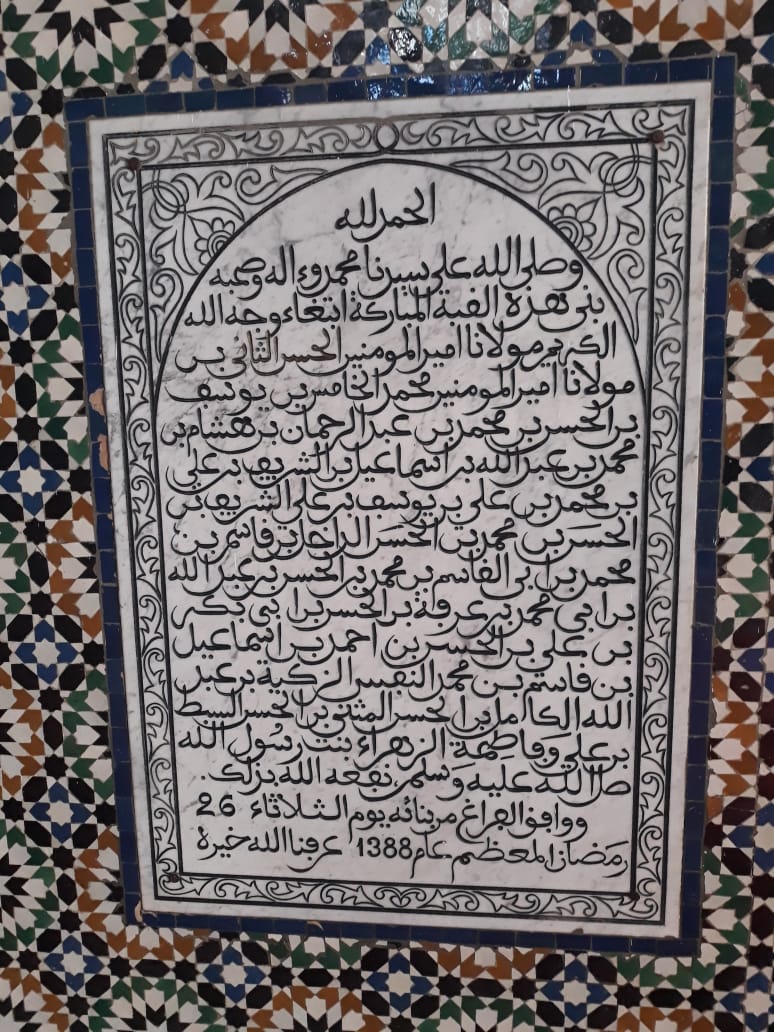 الحمد لله
وصلى الله على سيدنا محمد وءاله وصحبه
بنى هذه القبة المباركة ابتغاء وجه الله
الكريم مولانا امير المومنين الحسن الثاني بن
مولانا امير المومنين محمد الخامس بن يوسف
بن الحسن بن محمد بن عبد الرحمان بن هشام بن
محمد بن عبد الله بن اسماعيل بن الشريف بن علي
بن محمد بن علي بن يوسف بن علي الشريف بن
الحسن بن محمد بن الحسن الداخل بن قاسم بن
محمد بن ابي القاسم بن محمد بن الحسن بن عبد الله
بن ابي محمد بن عرفة بن الحسن بن ابي بكر
بن علي بن الحسن بن احمد بن اسماعيل
بن قاسم بن محمد النفس الزكية بن عبد
الله الكامل بن الحسن المثنى بن الحسن السبط
بن علي وفاطمة الزهراء بنت رسول الله
صلى الله عليه وسلم نفعه الله بذلك.
ووافق الفراغ من بنائه يوم الثلاثاء 26
رمضان المعظم عام 1388 عرفنا الله خيره